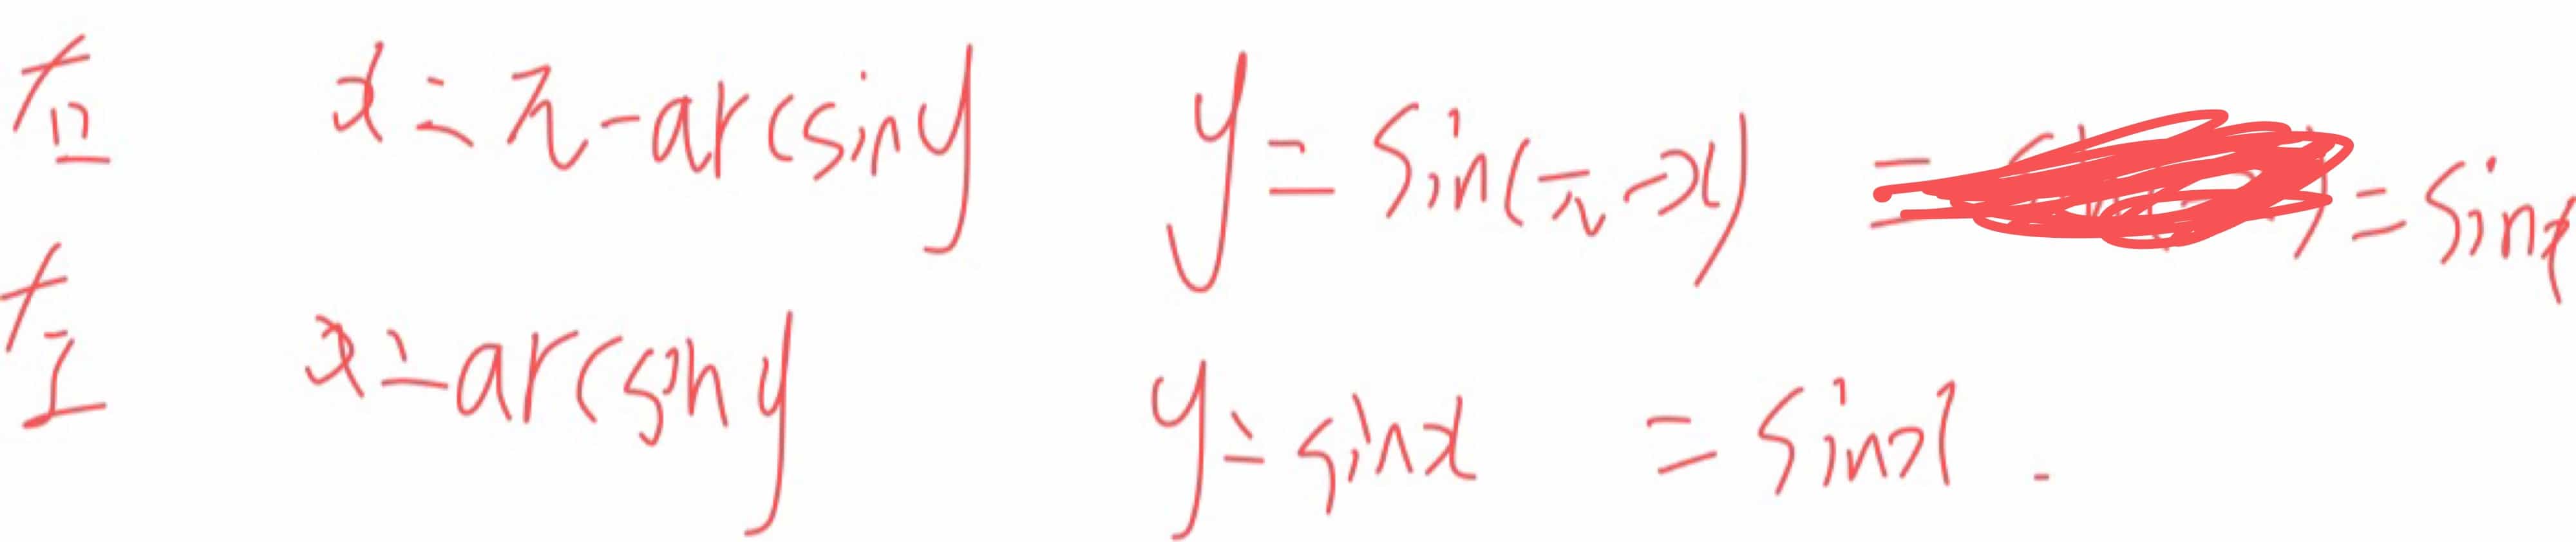 右 x = π - arcsin y y = sin(π - x) = sin x
左 x = arcsin y y = sin x = sin x .